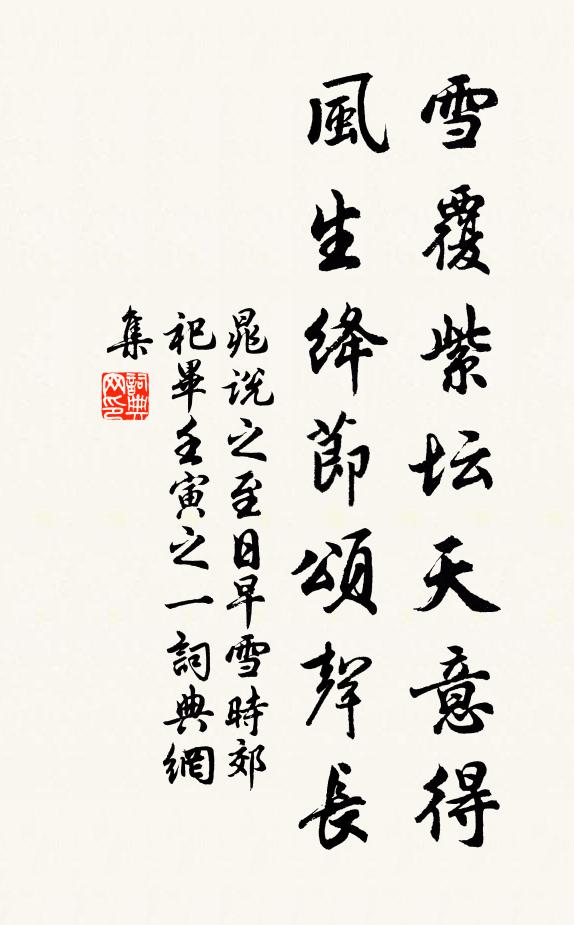 雪覆紫坛天意得
風生绛節頌聲長
晁說之至日早雪時郊
祀畢壬寅之一詞典網
集
詞典
网印